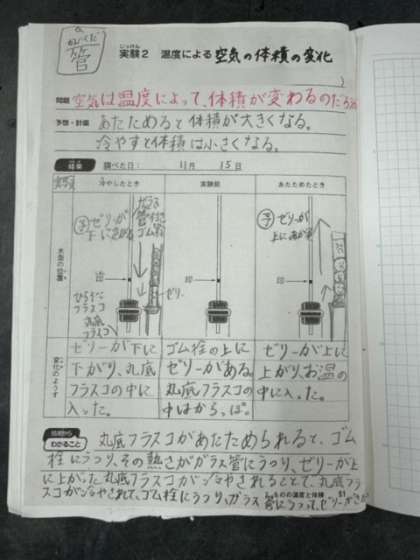 管
実験2 温度による空気の体積の変化
問題 空気は温度によって、体積が変わるのだろうか
予想・計画 あたためると体積が大きくなる。
冷やすと体積は小さくなる。
結果 調べた日： 11月 15日
実験 冷やしたとき 実験前 あたためたとき
ゼリーが
下に
ガラス
管
ゴム
予 ゼリーが
上に
水面の位置
印 印 印
ゼリー
ひらぞこ
フラスコ
丸底
フラスコ
変化のようす
ゼリーが下に
下がり、丸底
フラスコの中に
入った。
ゴム栓の上に
ゼリーがある。
丸底フラスコの
中はからっぽ。
ゼリーが上に
上がり、お温の
中に入った。
結果から
わかること 丸底フラスコがあたためられると、ゴム
栓にうつり、その熱さがガラス管にうつり、ゼリーが上
に上がった。丸底フラスコが冷やされることで、丸底フラ
スコが冷やされて、ゴム栓にうつり、ガラス
ものの温度と体積 51
管にうつって、ゼリーが